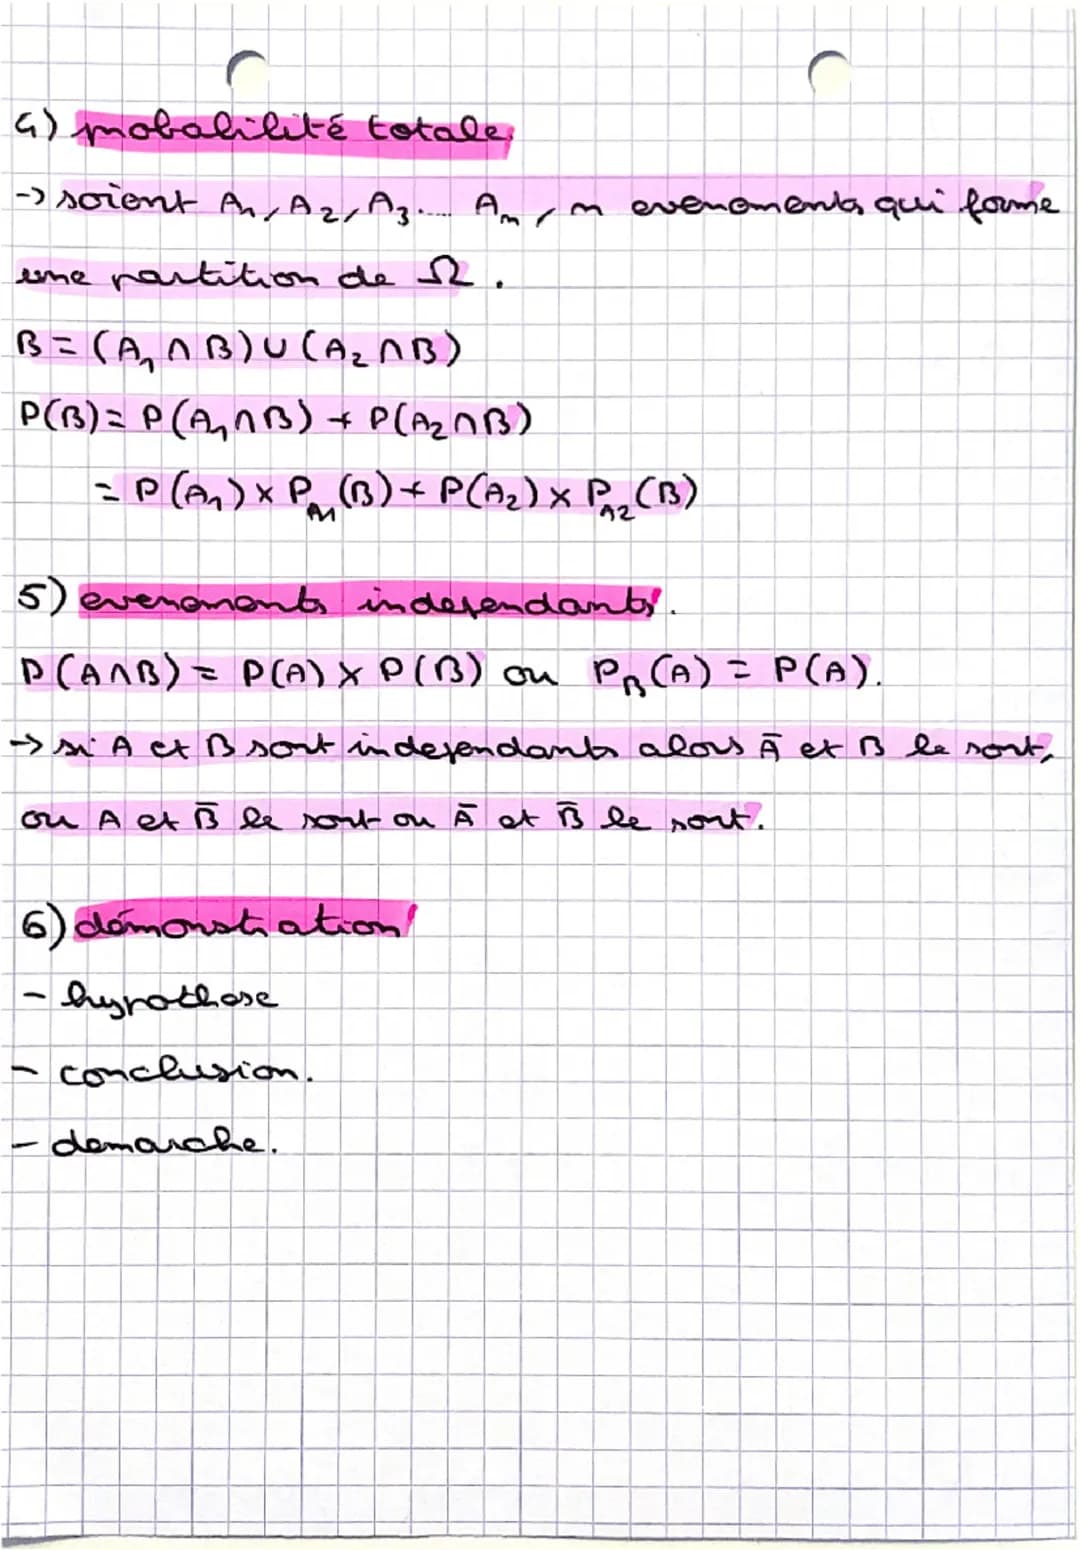 4) probabilité totale.
-> soient A₁, A₂, A₃.... Aₙ, n evenements qui forme
une partition de Ω.
B = (A₁ ∩ B) ∪ (A₂ ∩ B)
P(B) = P(A₁ ∩ B) + P(A₂ ∩ B)
= P(A₁) × P_A1(B) + P(A₂) × P_A2(B)
5) evenements independants.
P(A∩B) = P(A) × P(B) ou P_B(A) = P(A).
-> si A et B sont independants alors Ā et B le sont,
ou A et B̄ le sont ou Ā et B̄ le sont.
6) démonstration
- hypothese
- conclusion.
- demarche.